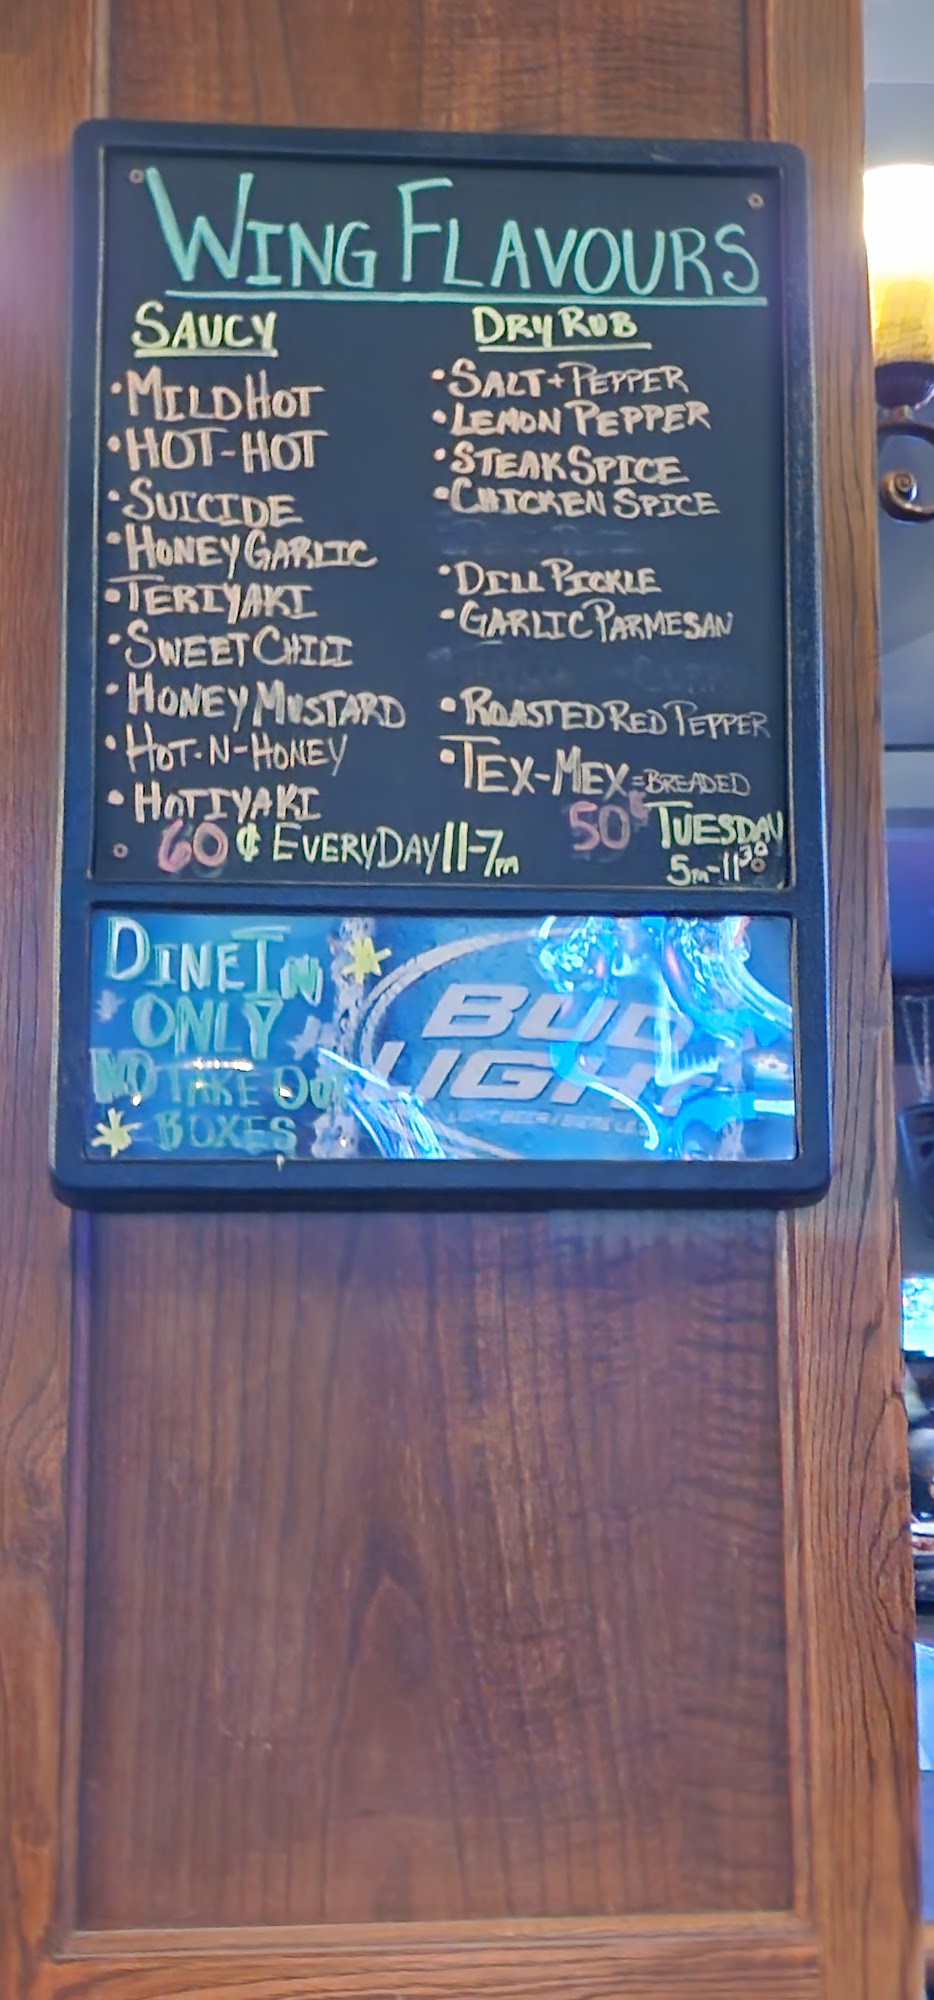 WING FLAVOURS
SAUCY
• MILD HOT
• HOT-HOT
• SUICIDE
• HONEY GARLIC
• TERIYAKI
• SWEET CHILI
• HONEY MUSTARD
• HOT-N-HONEY
• HOTIYAKI
DRY RUB
• SALT + PEPPER
• LEMON PEPPER
• STEAK SPICE
• CHICKEN SPICE
• DILL PICKLE
• GARLIC PARMESAN
• ROASTED RED PEPPER
• TEX-MEX = BREADED
60 ¢ EVERYDAY 11-7pm
50¢ TUESDAY
5pm-1130
DINE IN
ONLY
NO TAKE OUT
BOXES
BUD
LIGHT